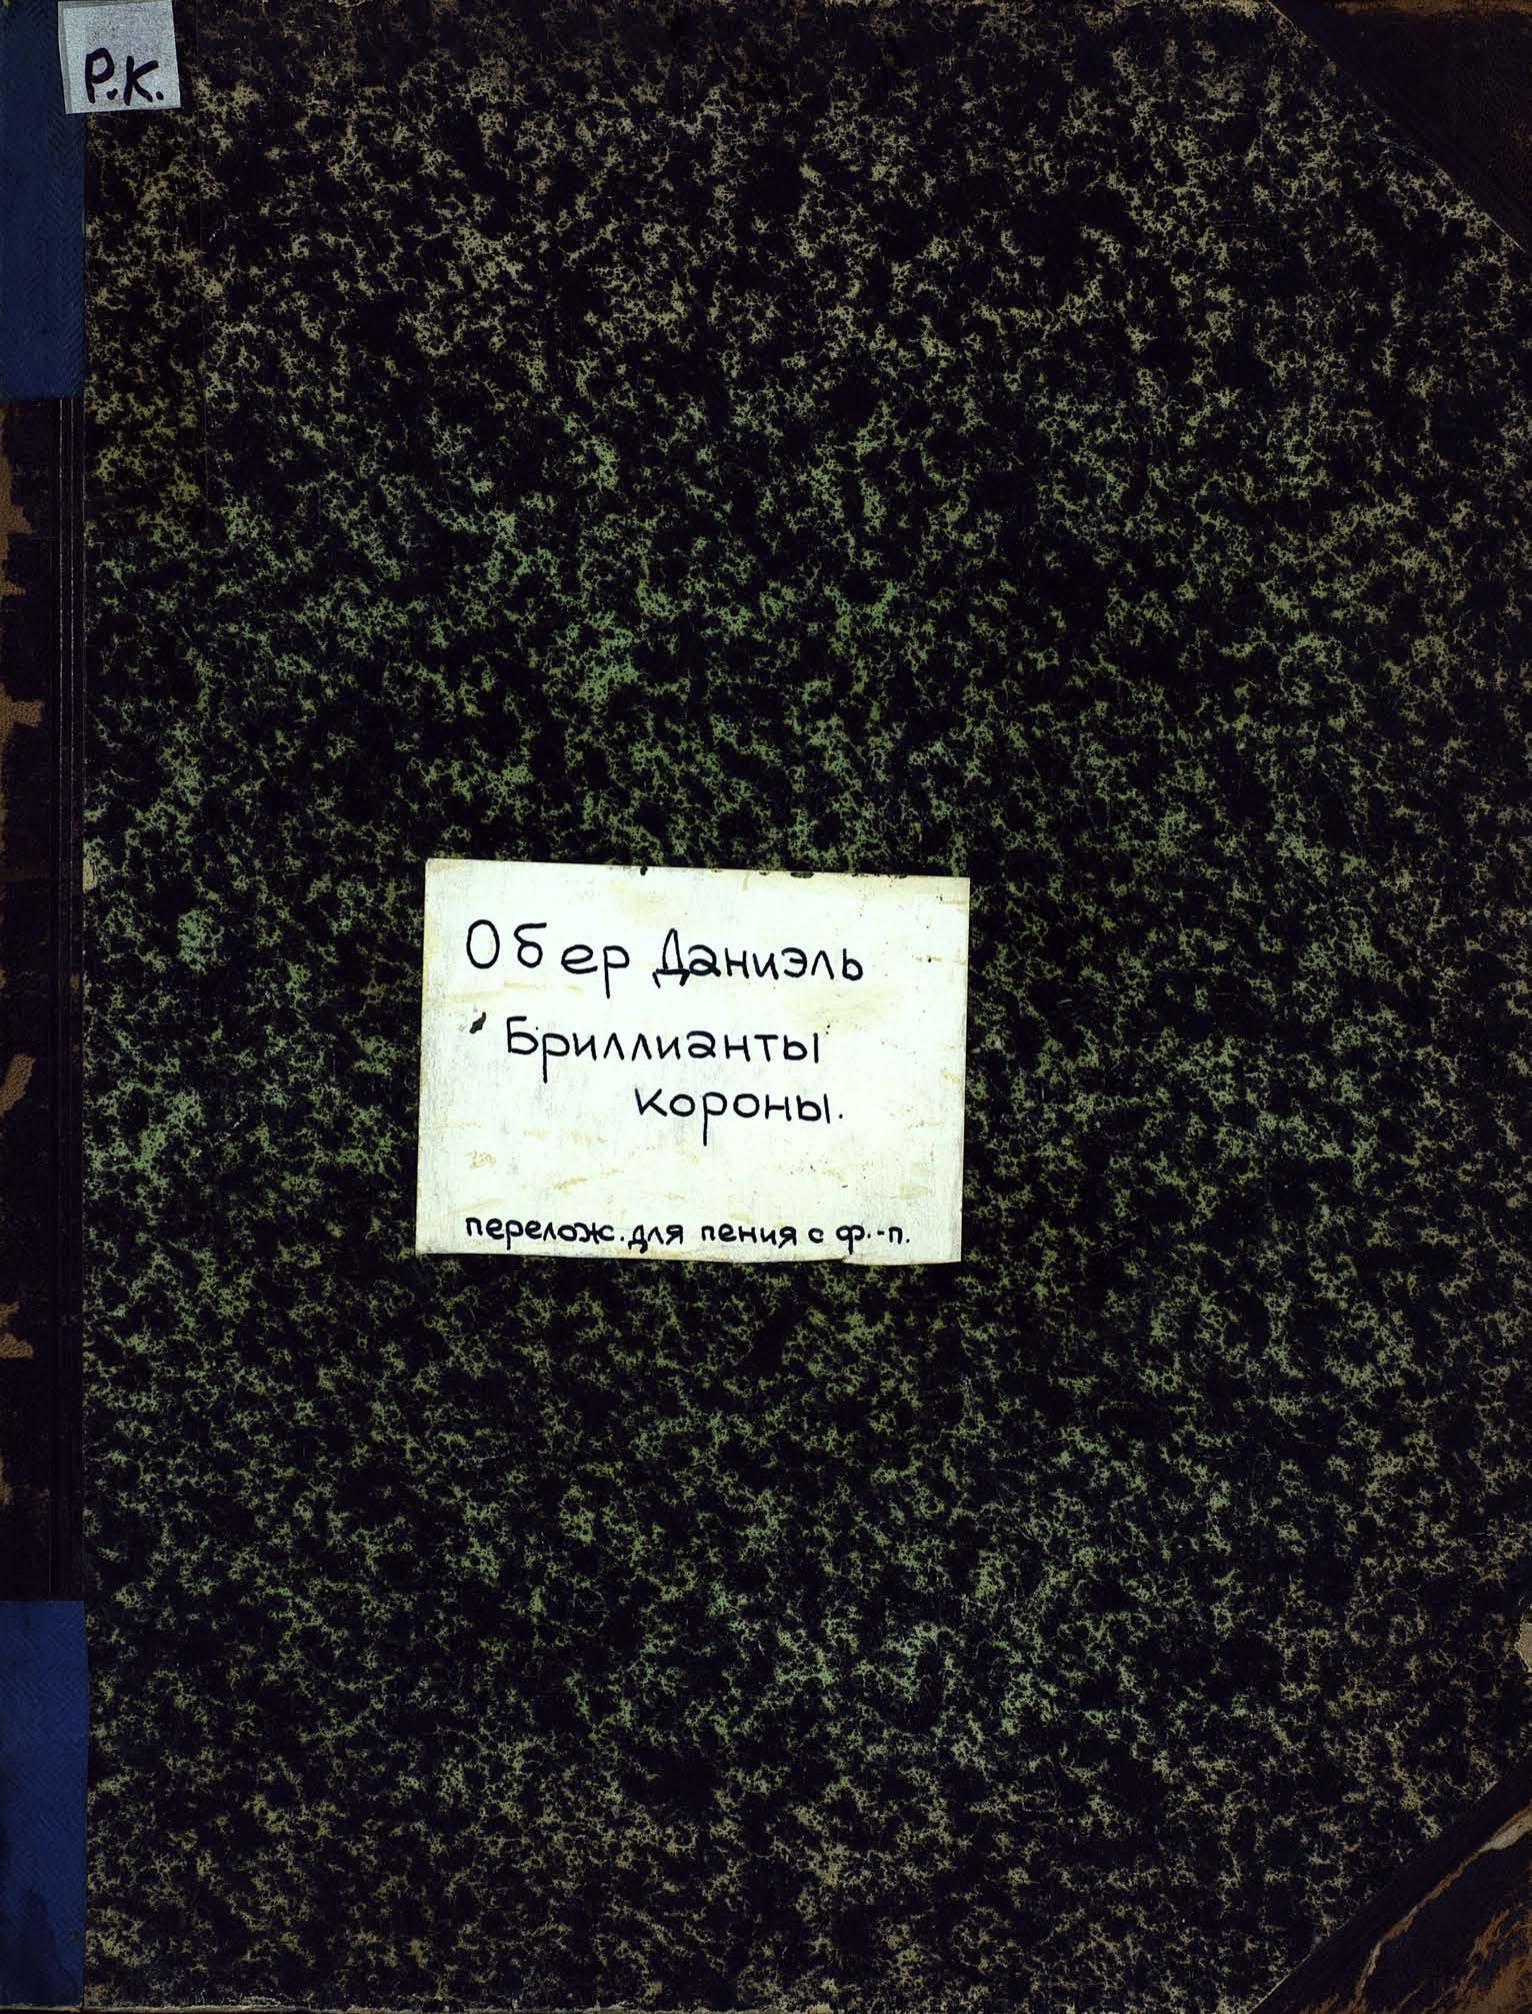 Р.К.
Обер Даниэль
Бриллианты
короны.
перелож. для пения с ф.-п.